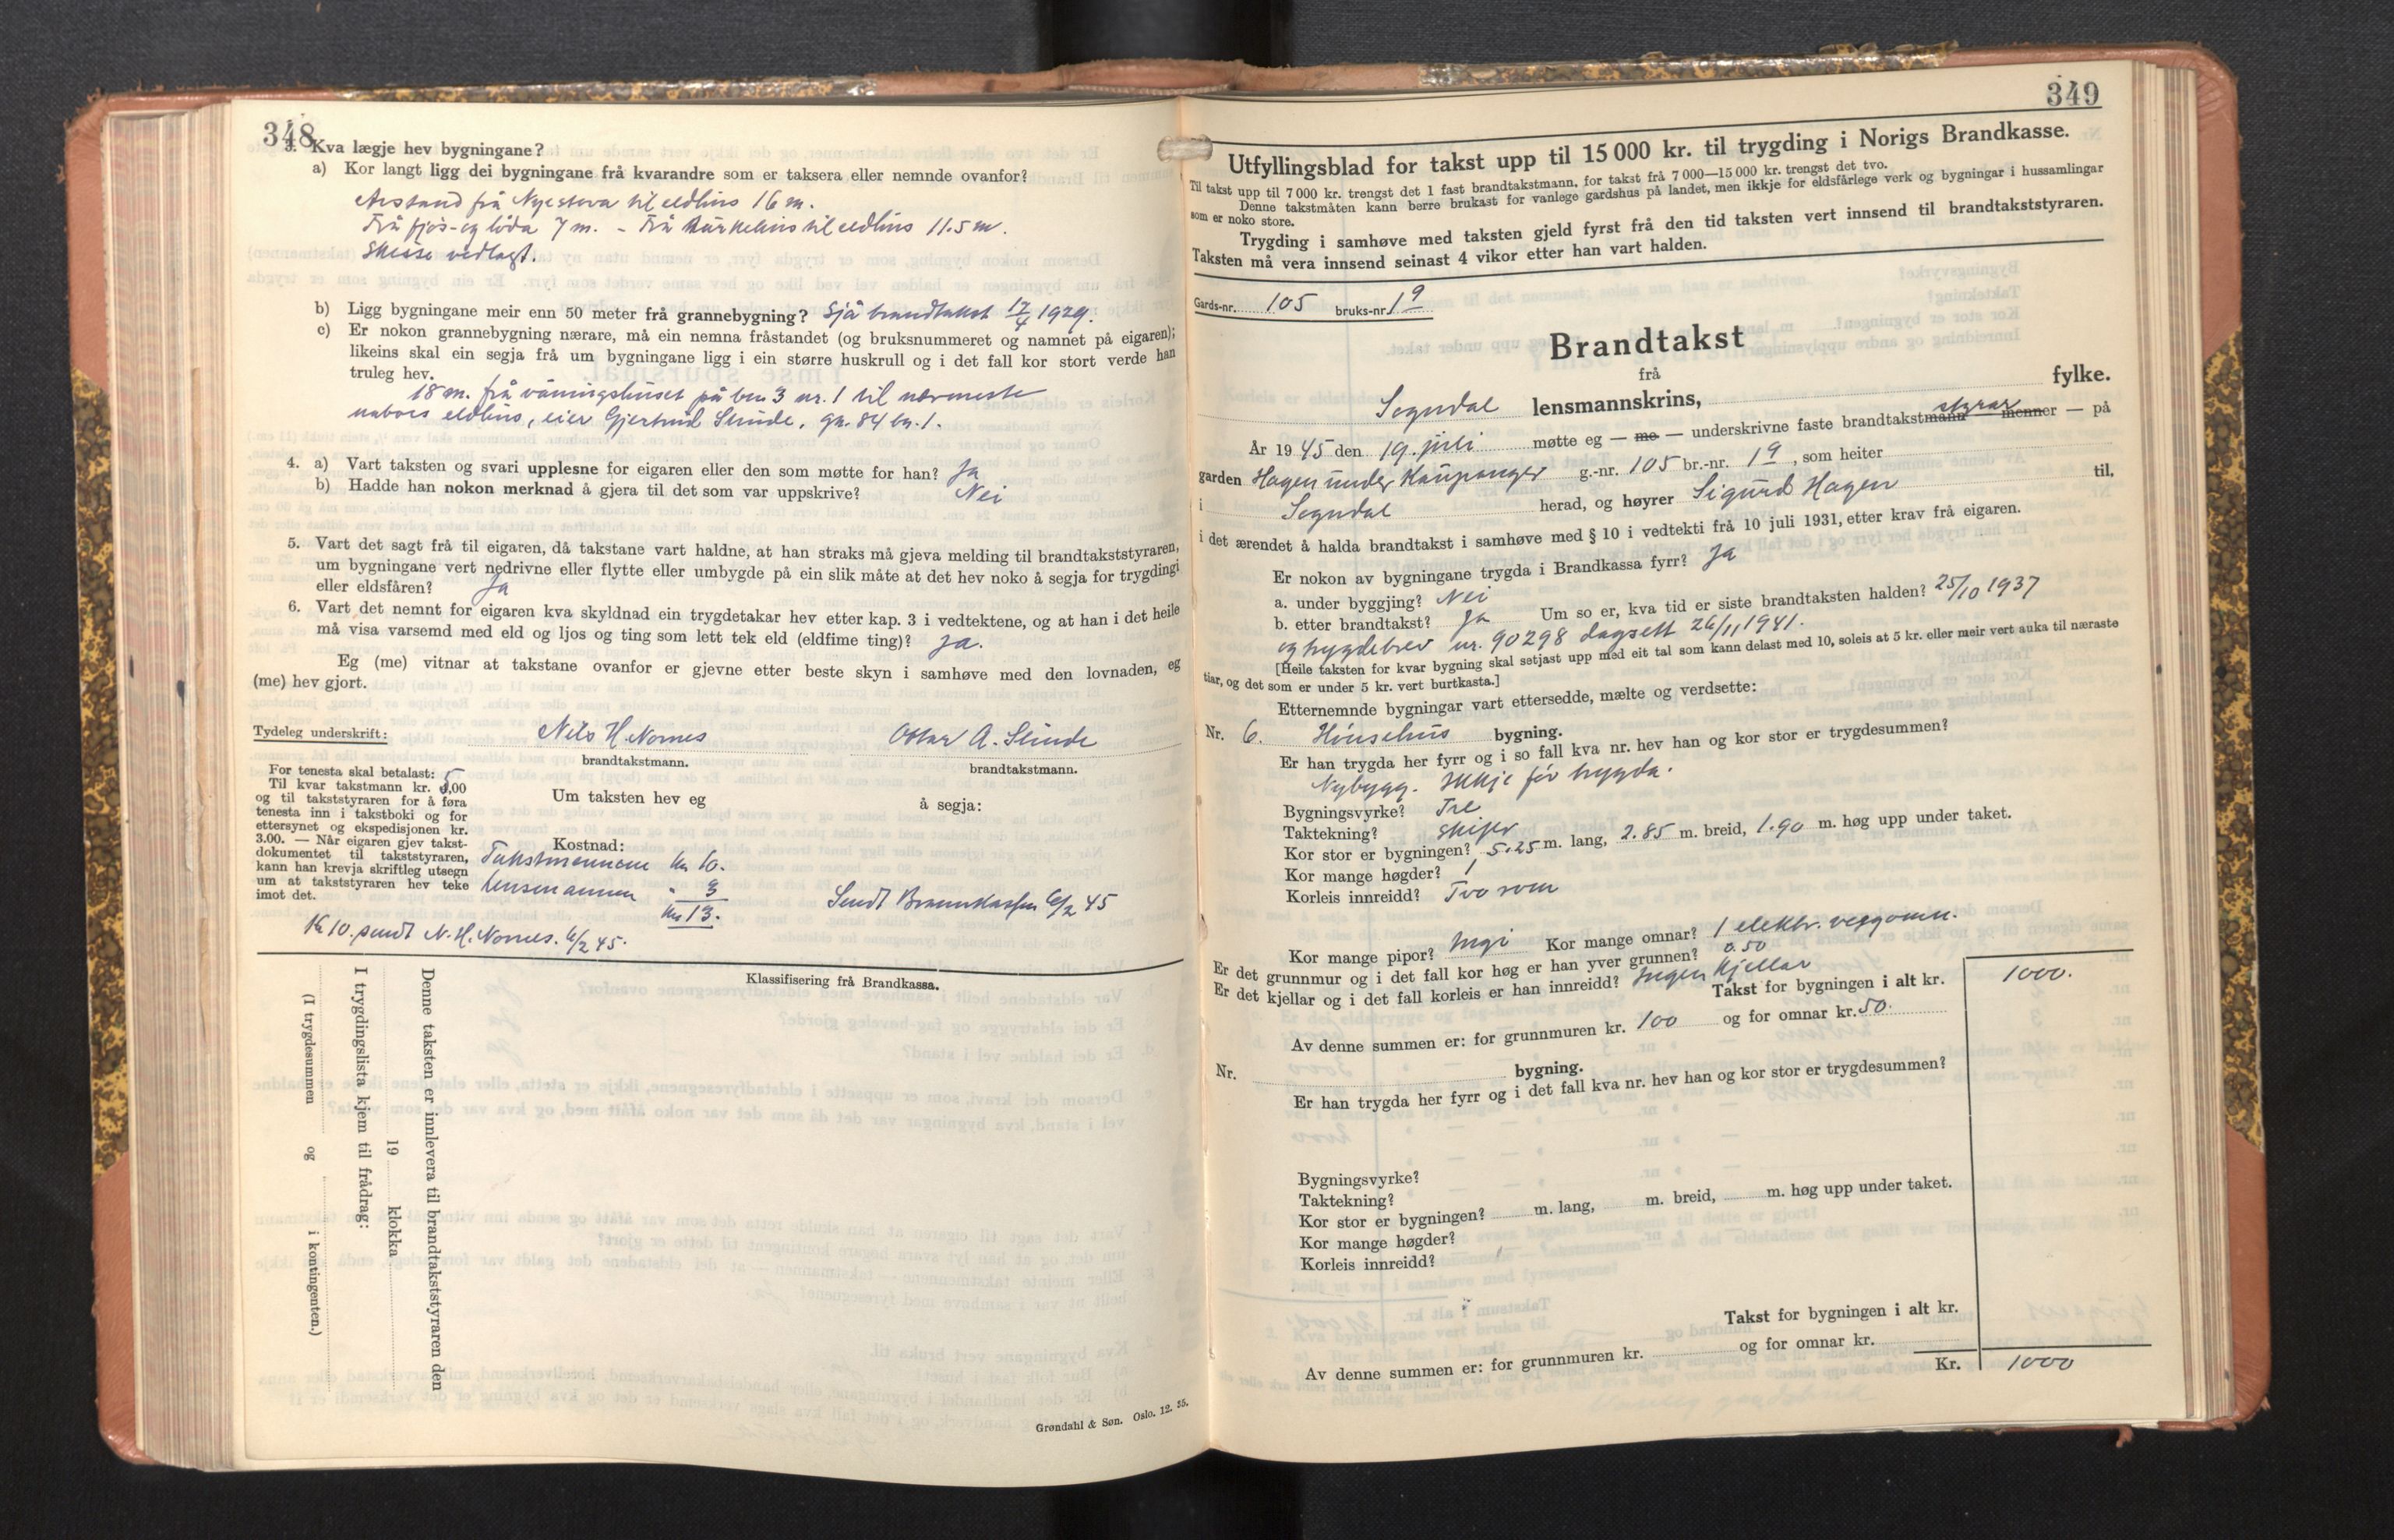 348
3. Kva lægje hev bygningane?
a) Kor langt ligg dei bygningane frå kvarandre som er taksera eller nemnde ovanfor?
Avstand frå Nyestova til eldhus 16 m.
Frå fjøs- og löda 7 m. - Frå turkehus til eldhus 11.5 m.
Skisse vedlagt.
b) Ligg bygningane meir enn 50 meter frå grannebygning? Sjå brandtakst 17/4 1929.
c) Er nokon grannebygning nærare, må ein nemna fråstandet (og bruksnummeret og namnet på eigaren);
likeins skal ein segja frå um bygningane ligg i ein større huskrull og i det fall kor stort verde han
truleg hev.
18 m. frå våningshuset på brn. 3 nr. 1 til nærmeste
nabois eldhus, eier Gjertrud Slinde, gn. 84 bn. 1.
4. a) Vart taksten og svari upplesne for eigaren eller den som møtte for han? Ja
b) Hadde han nokon merknad å gjera til det som var uppskrive? Nei
5. Vart det sagt frå til eigaren, då takstane vart haldne, at han straks må gjeva melding til brandtakststyraren,
um bygningane vert nedrivne eller flytte eller umbygde på ein slik måte at det hev noko å segja for trygdingi
eller eldsfåren? Ja
6. Vart det nemnt for eigaren kva skyldnad ein trygdetakar hev etter kap. 3 i vedtektene, og at han i det heile
må visa varsemd med eld og ljos og ting som lett tek eld (eldfime ting)? Ja.
Eg (me) vitnar at takstane ovanfor er gjevne etter beste skyn i samhøve med den lovnaden, eg
(me) hev gjort.
Tydeleg underskrift: Nils H. Nornes Ottar A. Slinde
brandtakstmann. brandtakstmann.
For tenesta skal betalast:
Til kvar takstmann kr. 5,00
og til takststyraren for å føra
tenesta inn i takstboki og for
ettersynet og ekspedisjonen kr.
3.00. — Når eigaren gjev takst-
dokumentet til takststyraren,
kann han krevja skriftleg utsegn
um at takststyraren hev teke
imot det.
Um taksten hev eg å segja:
Kostnad:
Takstmennene kr. 10.
Lensmannen " 3
kr. 13.
Sendt Brannkassen 6/2 45
Kr 10. sendt N. H. Nornes. 6/2 45.
Klassifisering frå Brandkassa.
Denne taksten er innlevera til brandtakststyraren den
19 klokka
I trygdingslista kjem til frådrag:
(I trygdesummen og i kontingenten.)
Grøndahl & Søn. Oslo. 12. 35.
349
Utfyllingsblad for takst upp til 15 000 kr. til trygding i Norigs Brandkasse.
Til takst upp til 7 000 kr. trengst det 1 fast brandtakstmann, for takst frå 7 000—15 000 kr. trengst det tvo.
Denne takstmåten kann berre brukast for vanlege gardshus på landet, men ikkje for eldsfårlege verk og bygningar i hussamlingar
som er noko store.
Trygding i samhøve med taksten gjeld fyrst frå den tid taksten vert innsend til brandtakststyraren.
Taksten må vera innsend seinast 4 vikor etter han vart halden.
Gards-nr. 105 bruks-nr. 19
Brandtakst
frå
fylke.
Sogndal lensmannskrins,
År 1945 den 19. juli møtte eg — me — underskrivne faste brandtakstmann styrar menner — på
garden Hagen under Kaupanger g.-nr. 105 br.-nr. 19, som heiter
i Sogndal herad, og høyrer Sigurd Hagen til,
i det ærendet å halda brandtakst i samhøve med § 10 i vedtekti frå 10 juli 1931, etter krav frå eigaren.
Er nokon av bygningane trygda i Brandkassa fyrr? Ja
a. under byggjing? Nei
b. etter brandtakst? Ja Um so er, kva tid er siste brandtaksten halden? 25/10 1937
og trygdebrev nr. 90298 dagsett 26/11 1941.
[Heile taksten for kvar bygning skal setjast upp med eit tal som kann delast med 10, soleis at 5 kr. eller meir vert auka til næraste
tiar, og det som er under 5 kr. vert burtkasta.]
Etternemnde bygningar vart ettersedde, mælte og verdsette:
Nr. 6. Hönsehus bygning.
Er han trygda her fyrr og i so fall kva nr. hev han og kor stor er trygdesummen?
Nybygg. Ikkje för trygda.
Bygningsvyrke? Tre
Taktekning? Skifer
Kor stor er bygningen? 5.25 m. lang, 2.85 m. breid, 1.90 m. høg upp under taket.
Kor mange høgder? 1
Korleis innreidd? Tvo rom
Kor mange pipor? Ingi Kor mange omnar? 1 elektr. veggomn.
Er det grunnmur og i det fall kor høg er han yver grunnen? 0.50
Er det kjellar og i det fall korleis er han innreidd? Ingen kjellar
Takst for bygningen i alt kr. 1000.
Av denne summen er: for grunnmuren kr. 100 og for omnar kr. 50.
Nr. bygning.
Er han trygda her fyrr og i det fall kva nr. hev han og kor stor er trygdesummen?
Bygningsvyrke?
Taktekning?
Kor stor er bygningen? m. lang, m. breid, m. høg upp under taket.
Kor mange høgder?
Korleis innreidd?
Takst for bygningen i alt kr.
Av denne summen er: for grunnmuren kr. og for omnar kr.
Kr. 1000